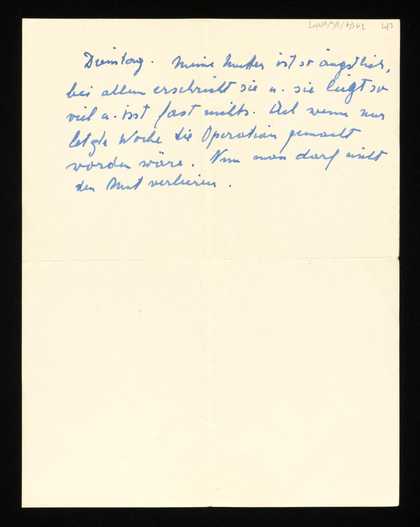 Dienstag. Meine Mutter ist so ängstlich,
bei allem erschrickt sie u. sie liegt so
viel u. isst fast nichts. Ach wenn nur
letzte Woche die Operation gemacht
worden wäre. Nun man darf nicht
den Mut verlieren.